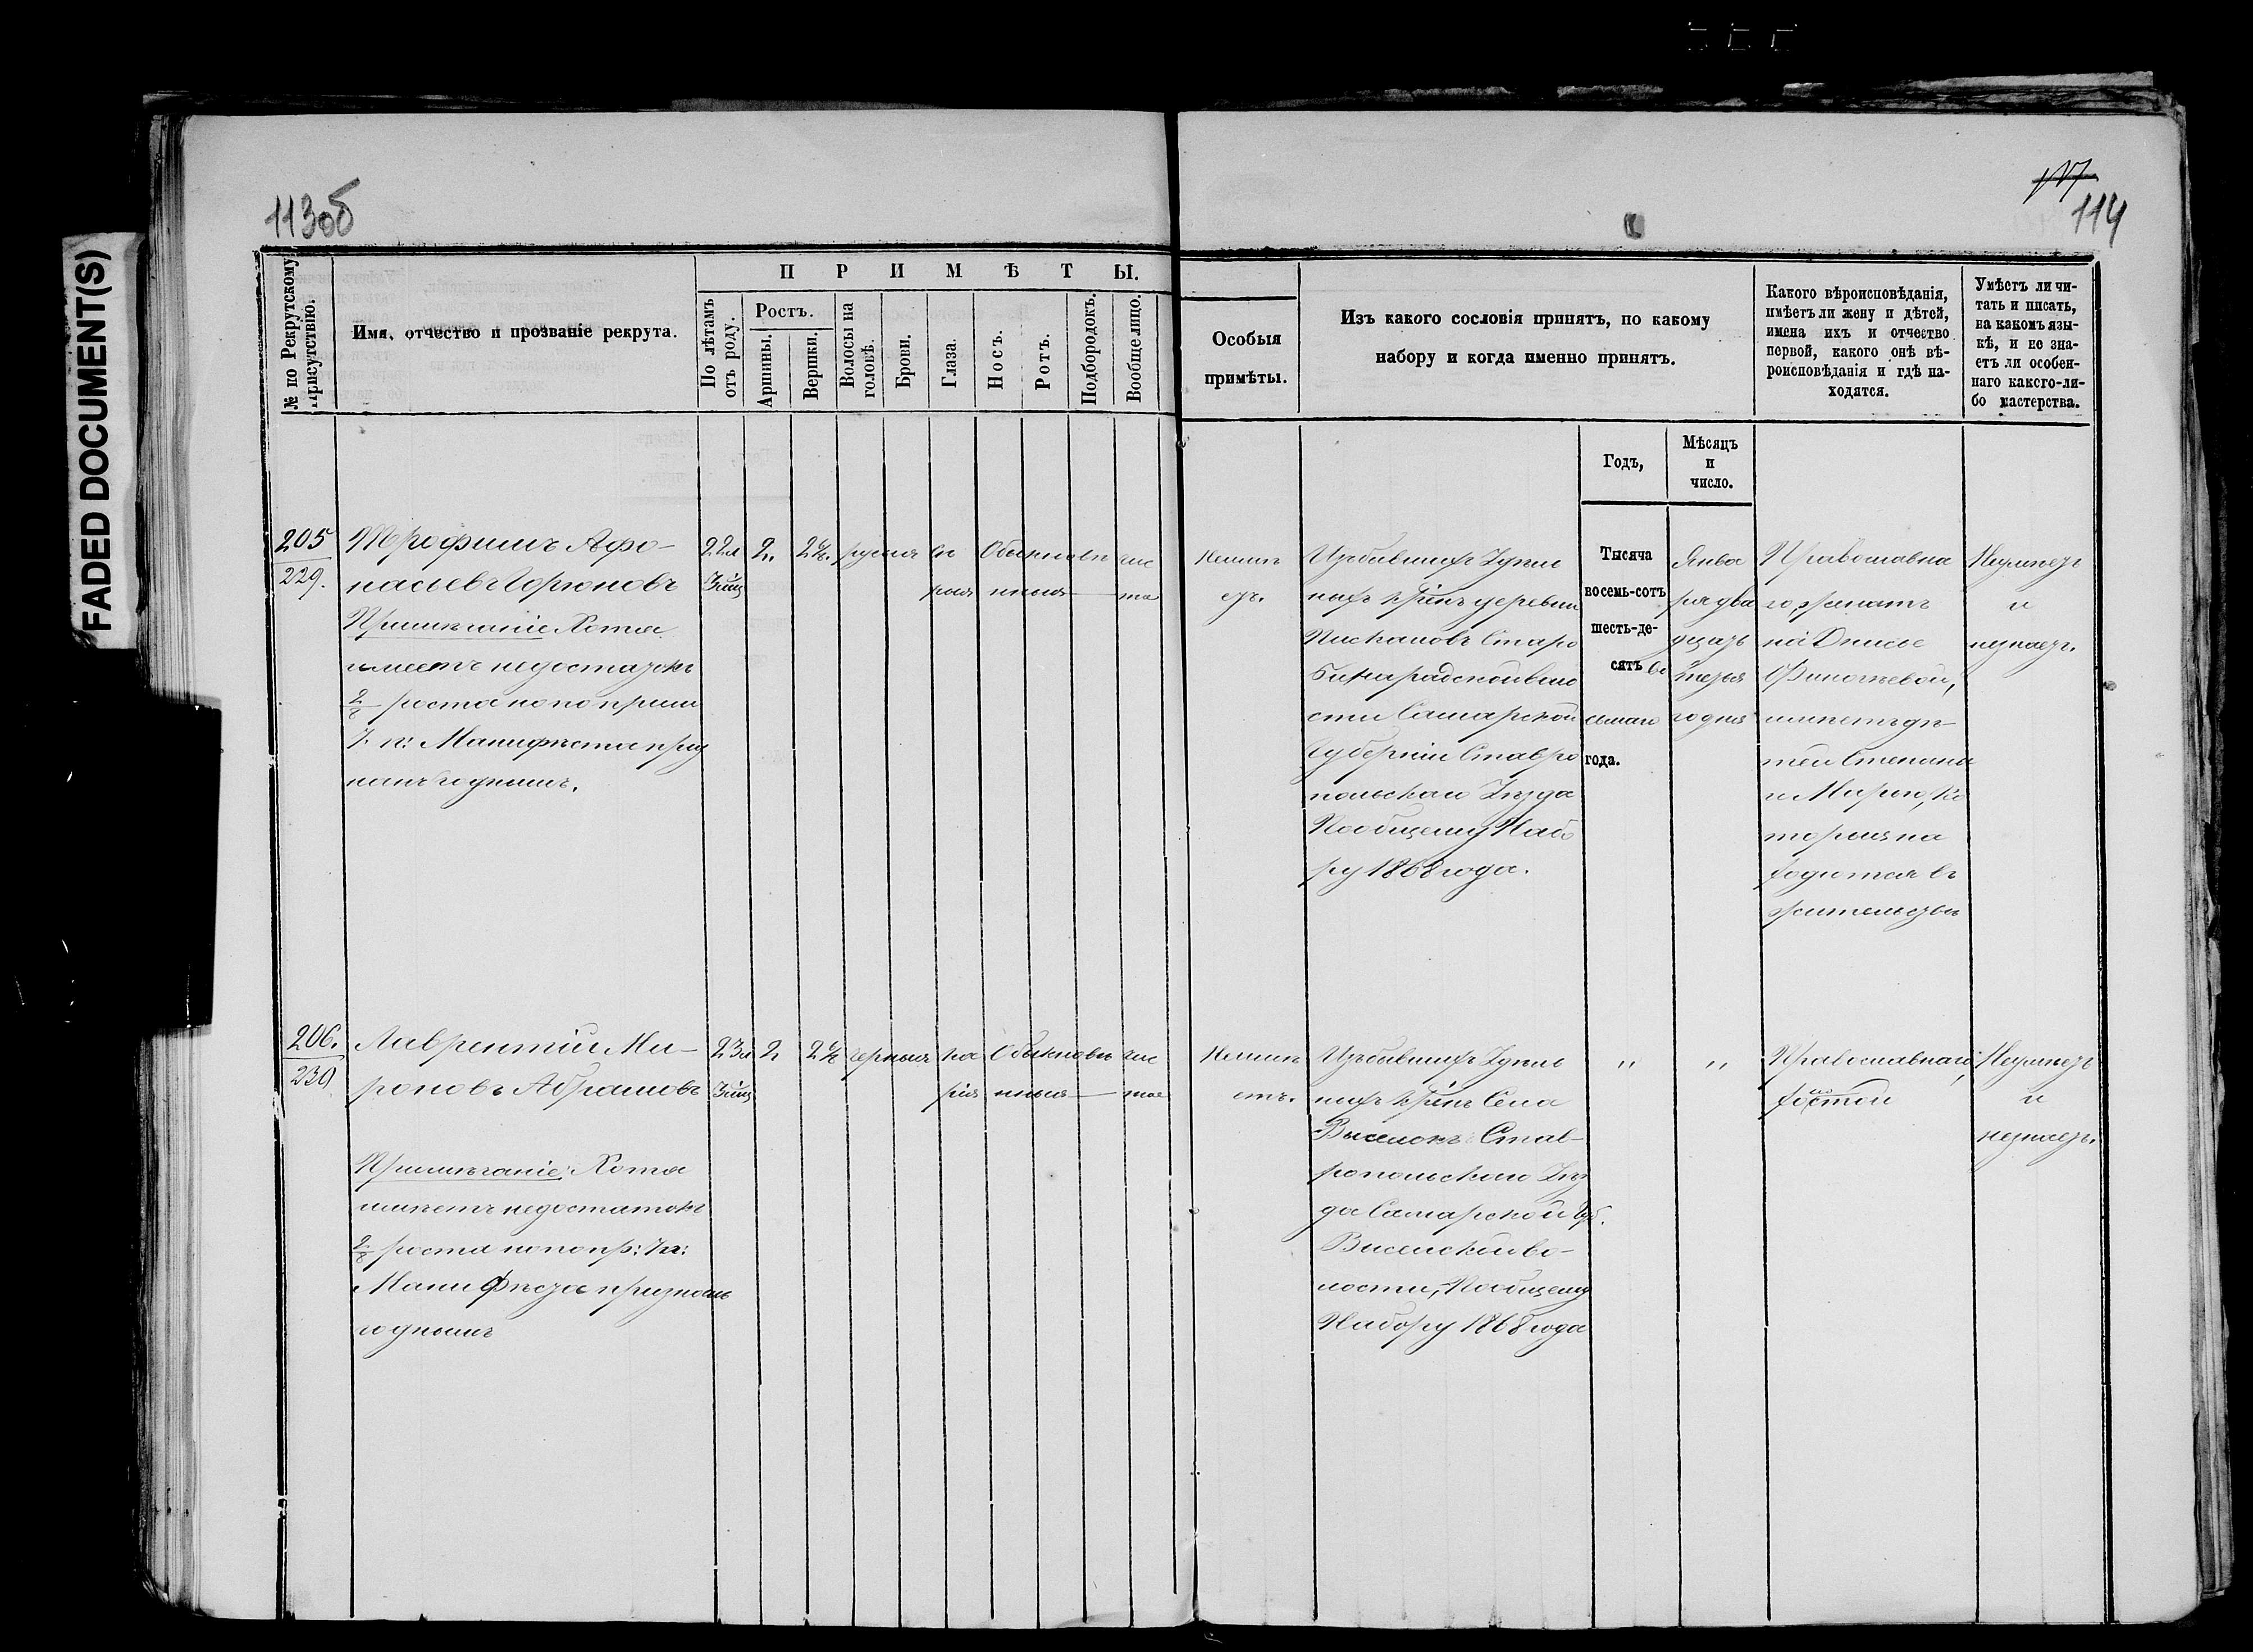 FADED DOCUMENT(S)
113об
114
№ по Рекрутскому Присутствію.
Имя, отчество и прозваніе рекрута.
ПРИМѢТЫ.
По лѣтамъ отъ роду.
Ростъ.
Аршины.
Вершки.
Волосы на головѣ.
Брови.
Глаза.
Носъ.
Ротъ.
Подбородокъ.
Вообще лицо.
Особыя
примѣты.
Изъ какого сословія принятъ, по какому
набору и когда именно принятъ.
Какого вѣроисповѣданія,
имѣетъ ли жену и дѣтей,
имена ихъ и отчество
первой, какого онѣ вѣ-
роисповѣданія и гдѣ на-
ходятся.
Умѣетъ ли чи-
тать и писать,
на какомъ язы-
кѣ, и не зна-
етъ ли особен-
наго какого-ли-
бо мастерства.
Годъ,
Мѣсяцъ
и
число.
205
229.
Трофимъ Афо-
насьевъ Горюновъ
Примѣчаніе Хотя
имеетъ недостатокъ
2/8 роста но по прим
7 п: Манифеста приз
нанъ годнымъ.
22
2.
2
русыя
сѣ
рыя
Обыкновѣ
нныя
чис
тое
Неимѣ
етъ.
Изъ бывшихъ Удѣль
ныхъ деревни
Старо
Бинарадской воло
сти Самарской
Губерніи Ставро
польскаго Уѣзда
По общему Набо
ру 1868 года.
Тысяча
восемь-сотъ
шесть-де-
сятъ во
сьмаго
года.
Янва
ря два
дцать
третья
го дня
Православна
го, женатъ
на
имѣетъ дѣ
тей Степана
и Марью, ко
торыя на
ходятся въ
жительствѣ
Неумѣетъ
и
незнаетъ.
206.
230
Лаврентій Ми-
роновъ Абрамовъ
Примѣчаніе: Хотя
имѣетъ недостатокъ
2/8 роста но по пр: 7 п:
Манифеста признанъ
годнымъ
23
2
2
черныя
ка
рія
Обыкновѣ
нныя
чис
тое
Неимѣ
етъ.
Изъ бывшихъ Удѣль
ныхъ Села
Выселокъ Став-
ропольскаго Уѣз
да Самарской Губ.
Высельской во-
лости, По общему
Набору 1868 года
"
"
Православнаго,
холостой
Неумѣетъ
и
незнаетъ.